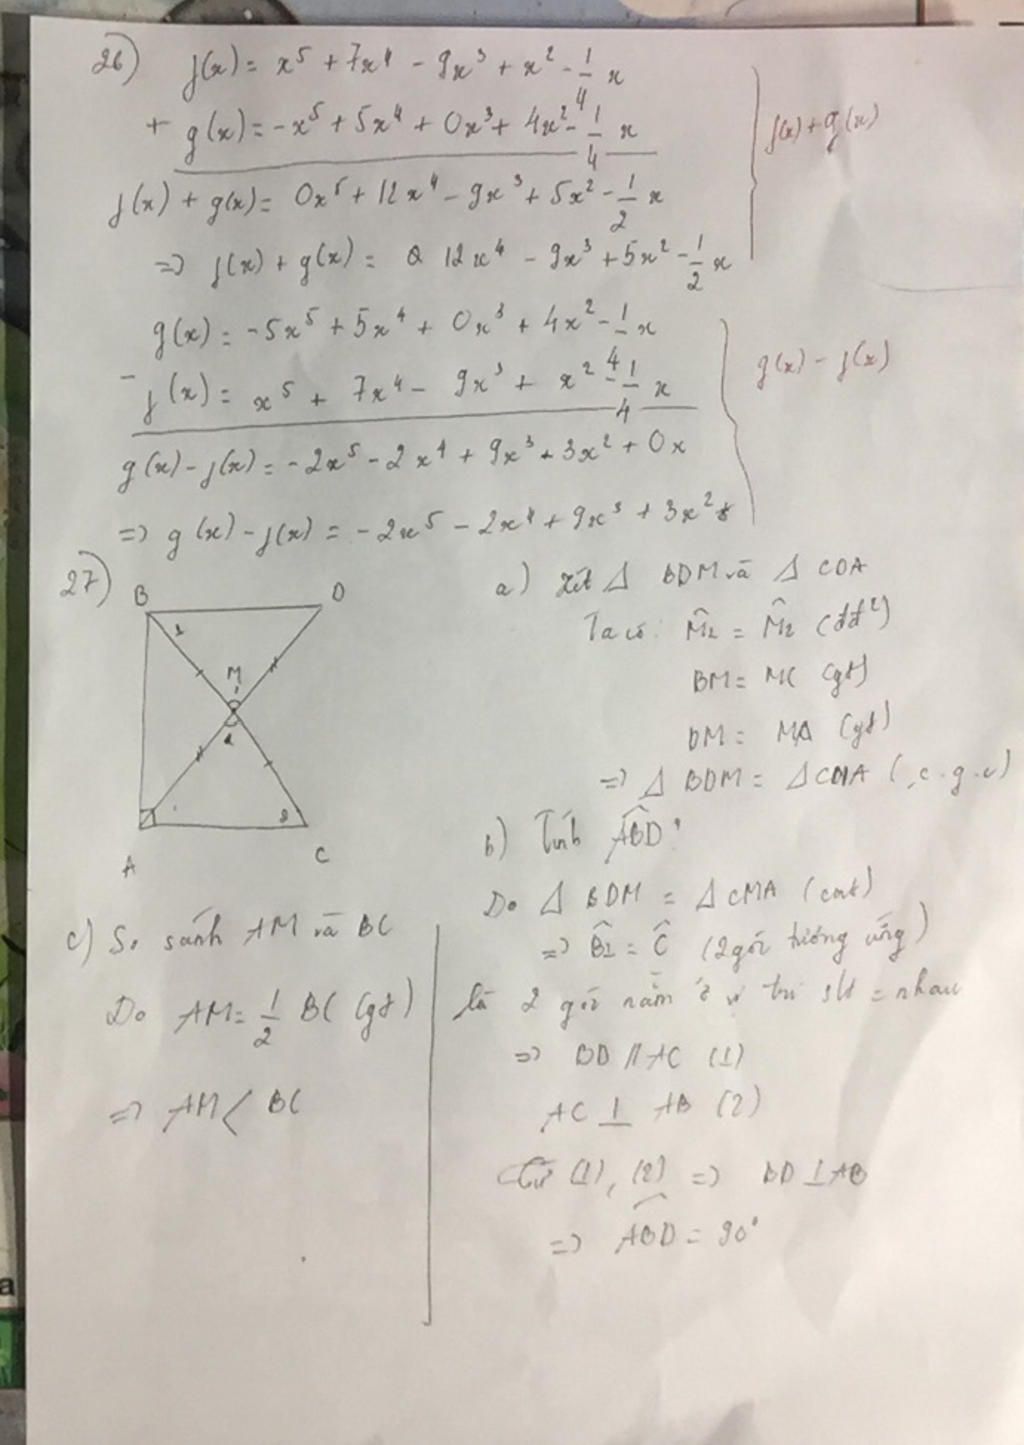 26) f(x) = x⁵ + 7x⁴ - 9x³ + x² - 1/4 x
+ g(x) = -x⁵ + 5x⁴ + 0x³ + 4x² - 1/4 x
f(x) + g(x)
f(x) + g(x) = 0x⁵ + 12x⁴ - 9x³ + 5x² - 1/2 x
=> f(x) + g(x) = 12x⁴ - 9x³ + 5x² - 1/2 x
g(x) = -5x⁵ + 5x⁴ + 0x³ + 4x² - 1/4 x
- f(x) = x⁵ + 7x⁴ - 9x³ + x² - 1/4 x
g(x) - f(x)
g(x) - f(x) = -2x⁵ - 2x⁴ + 9x³ + 3x² + 0x
=> g(x) - f(x) = -2x⁵ - 2x⁴ + 9x³ + 3x²
27)
B D
1
M
1
2
2
A C
a) Xét Δ BDM và Δ CDA
Ta có: M̂1 = M̂2 (đđ²)
BM = MC (gt)
DM = MA (gt)
=> Δ BDM = Δ CMA (c.g.c)
b) Tính ABD?
Do Δ BDM = Δ CMA (cmt)
=> B̂1 = Ĉ (2 góc tương ứng)
là 2 góc nằm ở vị trí slt = nhau
=> BD // AC (1)
AC ⊥ AB (2)
Từ (1), (2) => BD ⊥ AB
=> ABD = 90°
c) So sánh AM và BC
Do AM = 1/2 BC (gt)
=> AM < BC